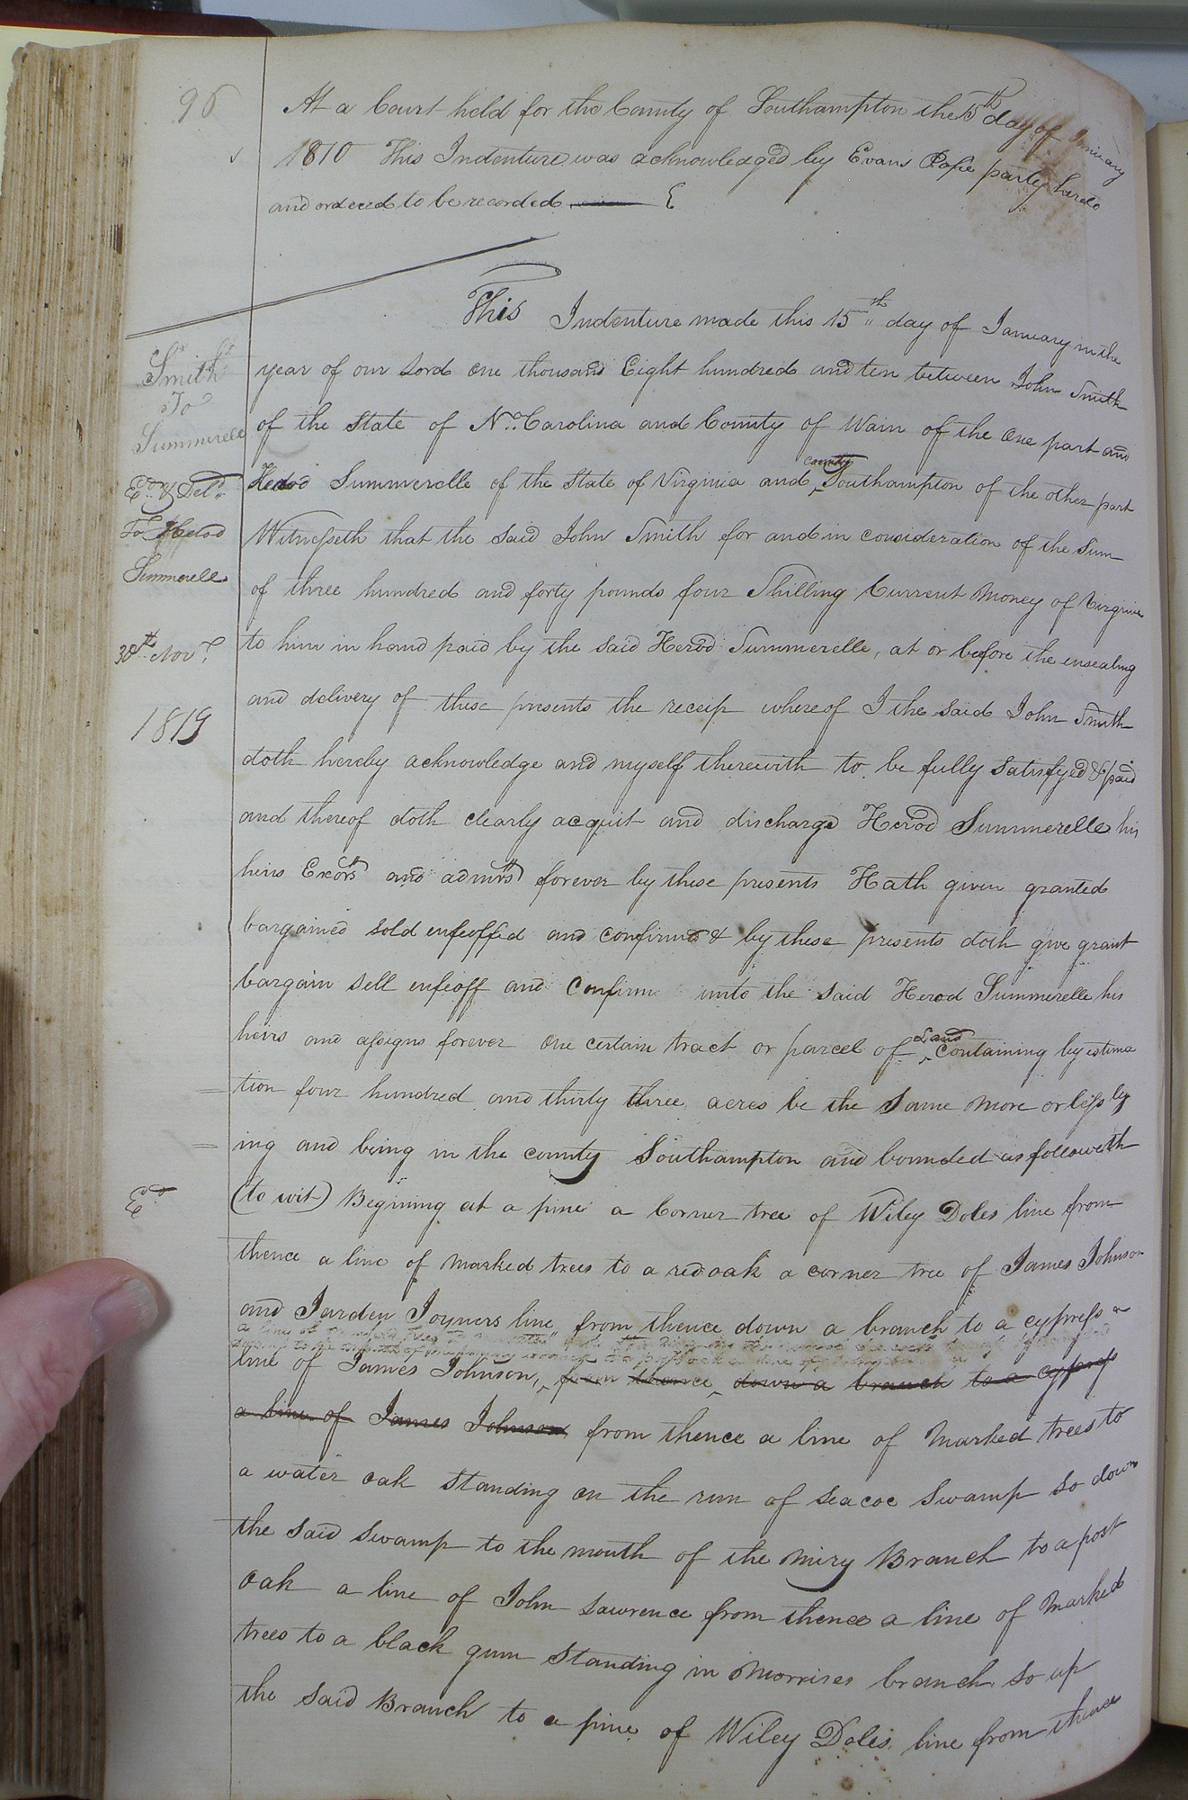 96
At a Court held for the County of Southampton the 15th day of January
1810 This Indenture was acknowledged by Evans Pope party hereto
and ordered to be recorded
This Indenture made this 15th day of January in the
year of our Lord One thousand Eight hundred and ten between John Smith
of the State of No. Carolina and County of Wain of the One part and
Herod Summerelle of the State of Virginia and county Southampton of the other part
Witnesseth that the said John Smith for and in consideration of the Sum
of three hundred and forty pounds four Shilling Current Money of Virginia
to him in hand paid by the said Herod Summerelle, at or before the ensealing
and delivery of these presents the receip whereof I the said John Smith
doth hereby acknowledge and myself therewith to be fully satisfyed & paid
and thereof doth clearly acquit and discharge Herod Summerelle his
heirs Exors and admrs forever by these presents Hath given granted
bargained sold enfeoffed and confirmed & by these presents doth give grant
bargain sell enfeoff and Confirm unto the said Herod Summerelle his
heirs and assigns forever One certain tract or parcel of Land Containing by estima
tion four hundred and thirty three acres be the Same More or less ly
ing and being in the county Southampton and bounded as followeth
(to wit) Begining at a pine a Corner tree of Wiley Doles line from
thence a line of Marked trees to a red oak a corner tree of James Johnson
and Jarden Joyners line from thence down a branch to a cypress a
line of James Johnson, from thence down a branch to a cypress
a line of James Johnson from thence a line of Marked trees to
a water oak standing on the run of seacoe Swamp so down
the said Swamp to the mouth of the Miry Branch to a post
oak a line of John Lawrence from thence a line of Marked
trees to a black gum Standing in Morrises branch so up
the said Branch to a pine of Wiley Doles line from thence
Smith
To
Summerell
Ed. & Deld.
To Herod
Summerell
30th Nov.
1819
Ed.